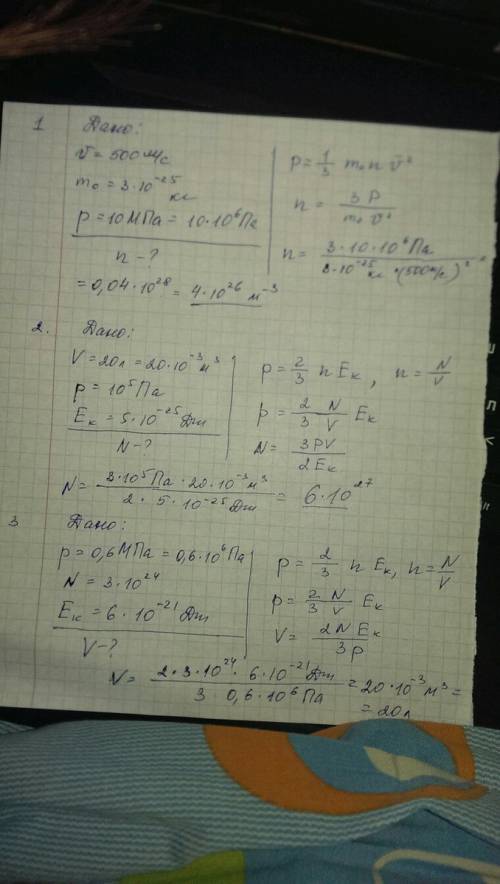 1 Дано:
v̅ = 500 м/с
m₀ = 3·10⁻²⁵ кг
p = 10 МПа = 10·10⁶ Па
n - ?
p = 1/3 m₀ n v̅²
n = 3p / m₀ v̅²
n = 3·10·10⁶ Па / 3·10⁻²⁵ кг ·(500 м/с)² =
= 0,04·10²⁸ = 4·10²⁶ м⁻³
2. Дано:
V = 20л = 20·10⁻³ м³
p = 10⁵ Па
Eк = 5·10⁻²⁵ Дж
N - ?
p = 2/3 n Eк, n = N/V
p = 2/3 N/V Eк
N = 3PV / 2Eк
N = 3·10⁵ Па · 20·10⁻³ м³ / 2 · 5·10⁻²⁵ Дж = 6·10²⁷
3 Дано:
p = 0,6 МПа = 0,6·10⁶ Па
N = 3·10²⁴
Eк = 6·10⁻²¹ Дж
V - ?
p = 2/3 n Eк, n = N/V
p = 2/3 N/V Eк
V = 2NEк / 3p
V = 2·3·10²⁴·6·10⁻²¹ Дж / 3·0,6·10⁶ Па = 20·10⁻³ м³ =
= 20л